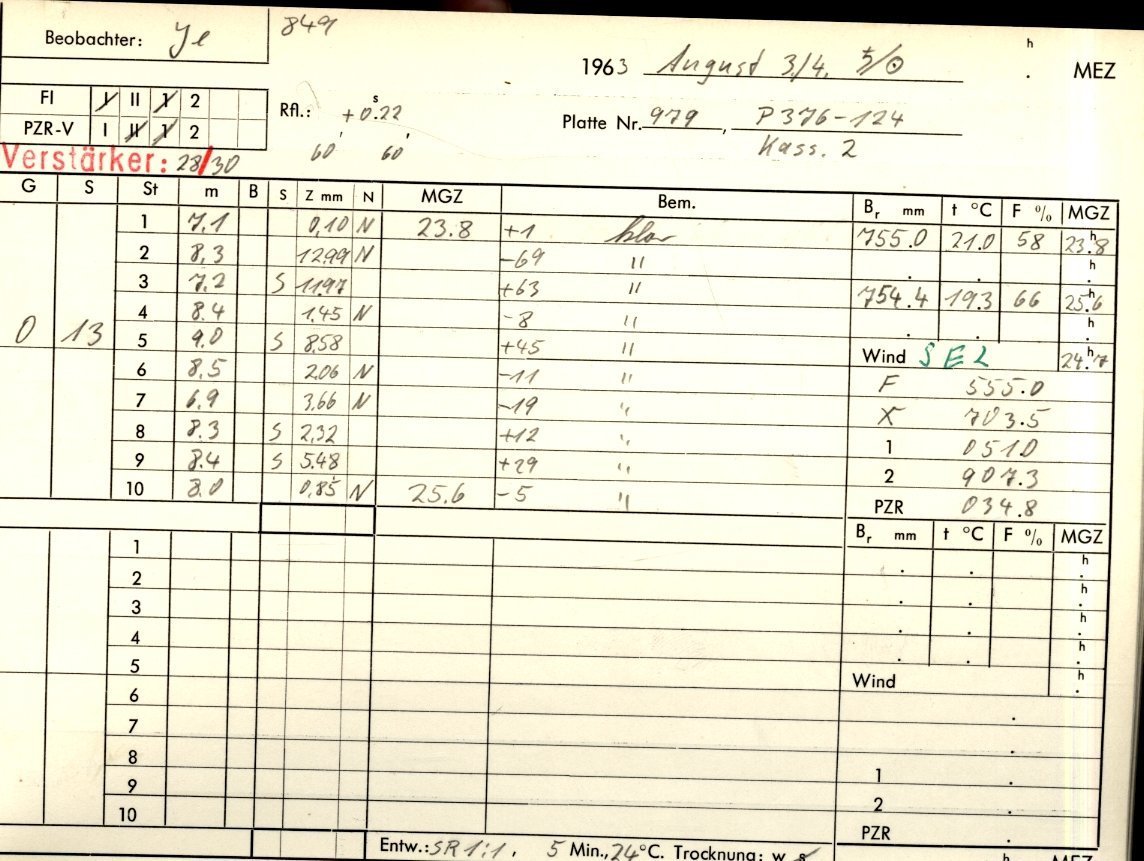 Beobachter: Je 849
1963 August 3./4. ♄/☉ h . MEZ
FI I II 1 2
PZR-V I II 1 2
Rfl.: +0ˢ.22
60' 60'
Platte Nr. 979, P376-124
Kass. 2
Verstärker: 28/30
G S St m B S Z mm N MGZ Bem. Br mm t °C F % MGZ
0 13
1 7,1 0,10 N 23.8 +1 klar 755.0 21.0 58 23.8 h
2 8,3 12,99 N -69 " . . h
3 7,2 S 11,97 +63 " 754.4 19.3 66 25.6 h
4 8.4 1,45 N -8 " . . h
5 9.0 S 8,58 +45 " Wind SE2 24.7 h
6 8,5 2,06 N -11 " F 555.0
7 6,9 3,66 N -19 " X 703.5
8 8.3 S 2,32 +12 " 1 051.0
9 8.4 S 5.48 +29 " 2 907.3
10 8.0 0,85 N 25.6 -5 " PZR 034.8
Br mm t °C F % MGZ
1 . . h
2 . . h
3 . . h
4 . . h
5 Wind h
6 .
7 .
8 1 .
9 2 .
10 PZR .
Entw.: SR 1:1, 5 Min., 24°C. Trocknung: w s
h MEZ